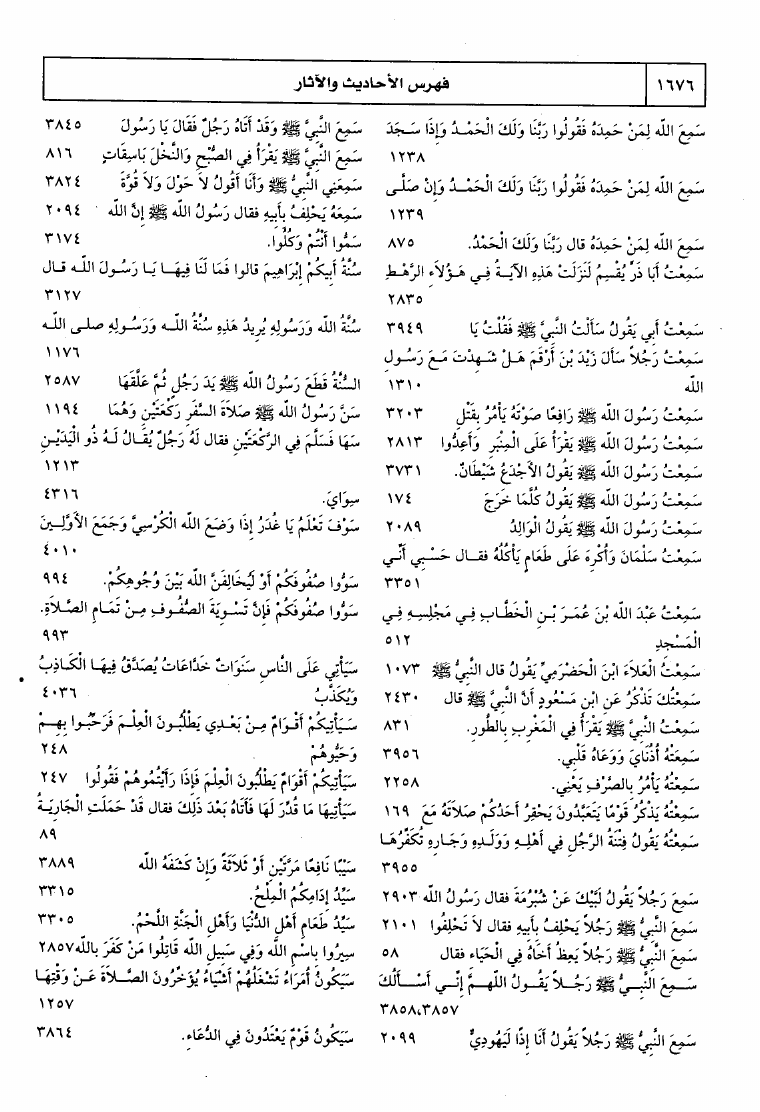 ١٦٧٦
فهرس الأحاديث والآثار
سَمِعَ الله لِمَنْ حَمِدَهُ فَقُولُوا رَبَّنَا وَلَكَ الْحَمْدُ وَإِذَا سَجَدَ
١٢٣٨
سَمِعَ الله لِمَنْ حَمِدَهُ فَقُولُوا رَبَّنَا وَلَكَ الْحَمْدُ وَإِنْ صَلَّى
١٢٣٩
سَمِعَ الله لِمَنْ حَمِدَهُ قال رَبَّنَا وَلَكَ الْحَمْدُ. ٨٧٥
سَمِعْتُ أَبَا ذَرٍّ يُقْسِمُ لَنَزَلَتْ هَذِهِ الآيَةُ فِي هَؤُلَاءِ الرَّهْطِ
٢٨٣٥
سَمِعْتُ أَبِي يَقُولُ سَأَلْتُ النَّبِيَّ ﷺ فَقُلْتُ يَا ٣٩٤٩
سَمِعْتُ رَجُلاً سَأَلَ زَيْدَ بْنَ أَرْقَمَ هَلْ شَهِدْتَ مَعَ رَسُولِ
الله ١٣١٠
سَمِعْتُ رَسُولَ الله ﷺ رَافِعًا صَوْتَهُ يَأْمُرُ بِقَتْلِ ٣٢٠٣
سَمِعْتُ رَسُولَ الله ﷺ يَقْرَأُ عَلَى الْمِنْبَرِ وَأَعِدُّوا ٢٨١٣
سَمِعْتُ رَسُولَ الله ﷺ يَقُولُ الأَجْدَعُ شَيْطَانٌ. ٣٧٣١
سَمِعْتُ رَسُولَ الله ﷺ يَقُولُ كُلَّمَا خَرَجَ ١٧٤
سَمِعْتُ رَسُولَ الله ﷺ يَقُولُ الْوَالِدُ ٢٠٨٩
سَمِعْتُ سَلْمَانَ وَأُكْرِهَ عَلَى طَعَامٍ يَأْكُلُهُ فقال حَسْبِي أَنِّي
٣٣٥١
سَمِعْتُ عَبْدَ الله بْنَ عُمَرَ بْنِ الْخَطَّابِ فِي مَجْلِسِهِ فِي
الْمَسْجِدِ ٥١٢
سَمِعْتُ الْعَلَاءَ ابْنَ الْحَضْرَمِيِّ يَقُولُ قال النَّبِيُّ ﷺ ١٠٧٣
سَمِعْتُكَ تَذْكُرُ عَنِ ابْنِ مَسْعُودٍ أَنَّ النَّبِيَّ ﷺ قال ٢٤٣٠
سَمِعْتُ النَّبِيَّ ﷺ يَقْرَأُ فِي الْمَغْرِبِ بِالطُّورِ. ٨٣١
سَمِعَتْهُ أُذُنَايَ وَوَعَاهُ قَلْبِي. ٣٩٥٦
سَمِعْتُهُ يَأْمُرُ بِالصَّرْفِ يَعْنِي. ٢٢٥٨
سَمِعْتُهُ يَذْكُرُ قَوْمًا يَتَعَبَّدُونَ يَحْقِرُ أَحَدُكُمْ صَلَاتَهُ مَعَ ١٦٩
سَمِعْتُهُ يَقُولُ فِتْنَةُ الرَّجُلِ فِي أَهْلِهِ وَوَلَدِهِ وَجَارِهِ تُكَفِّرُهَا
٣٩٥٥
سَمِعَ رَجُلاً يَقُولُ لَبَّيْكَ عَنْ شُبْرُمَةَ فقال رَسُولُ الله ٢٩٠٣
سَمِعَ النَّبِيُّ ﷺ رَجُلاً يَحْلِفُ بِأَبِيهِ فقال لَا تَحْلِفُوا ٢١٠١
سَمِعَ النَّبِيُّ ﷺ رَجُلاً يَعِظُ أَخَاهُ فِي الْحَيَاءِ فقال ٥٨
سَمِعَ النَّبِيُّ ﷺ رَجُلاً يَقُولُ اللهمَّ إِنِّي أَسْأَلُكَ
٣٨٥٨،٣٨٥٧
سَمِعَ النَّبِيُّ ﷺ رَجُلاً يَقُولُ أَنَا إِذًا لَيَهُودِيٌّ ٢٠٩٩
سَمِعَ النَّبِيَّ ﷺ وَقَدْ أَتَاهُ رَجُلٌ فَقَالَ يَا رَسُولَ ٣٨٤٥
سَمِعَ النَّبِيَّ ﷺ يَقْرَأُ فِي الصُّبْحِ وَالنَّخْلَ بَاسِقَاتٍ ٨١٦
سَمِعَنِي النَّبِيُّ ﷺ وَأَنَا أَقُولُ لَا حَوْلَ وَلَا قُوَّةَ ٣٨٢٤
سَمِعَهُ يَحْلِفُ بِأَبِيهِ فقال رَسُولُ الله ﷺ إِنَّ الله ٢٠٩٤
سَمُّوا أَنْتُمْ وَكُلُوا. ٣١٧٤
سُنَّةُ أَبِيكُمْ إِبْرَاهِيمَ قالوا فَمَا لَنَا فِيهَا يَا رَسُولَ الله قال
٣١٢٧
سُنَّةُ الله وَرَسُولِهِ يُرِيدُ هَذِهِ سُنَّةُ الله وَرَسُولِهِ صلى الله
١١٧٦
السُّنَّةُ قَطَعَ رَسُولُ الله ﷺ يَدَ رَجُلٍ ثُمَّ عَلَّقَهَا ٢٥٨٧
سَنَّ رَسُولُ الله ﷺ صَلَاةَ السَّفَرِ رَكْعَتَيْنِ وَهُمَا ١١٩٤
سَهَا فَسَلَّمَ فِي الرَّكْعَتَيْنِ فقال لَهُ رَجُلٌ يُقَالُ لَهُ ذُو الْيَدَيْنِ
١٢١٣
سِوَايَ. ٤٣١٦
سَوْفَ تَعْلَمُ يَا غُدَرُ إِذَا وَضَعَ الله الْكُرْسِيَّ وَجَمَعَ الأَوَّلِينَ
٤٠١٠
سَوُّوا صُفُوفَكُمْ أَوْ لَيُخَالِفَنَّ الله بَيْنَ وُجُوهِكُمْ. ٩٩٤
سَوُّوا صُفُوفَكُمْ فَإِنَّ تَسْوِيَةَ الصُّفُوفِ مِنْ تَمَامِ الصَّلَاةِ.
٩٩٣
سَيَأْتِي عَلَى النَّاسِ سَنَوَاتٌ خَدَّاعَاتُ يُصَدَّقُ فِيهَا الْكَاذِبُ
وَيُكَذَّبُ ٤٠٣٦
سَيَأْتِيكُمْ أَقْوَامٌ مِنْ بَعْدِي يَطْلُبُونَ الْعِلْمَ فَرَحِّبُوا بِهِمْ
وَحَيُّوهُمْ ٢٤٨
سَيَأْتِيكُمْ أَقْوَامٌ يَطْلُبُونَ الْعِلْمَ فَإِذَا رَأَيْتُمُوهُمْ فَقُولُوا ٢٤٧
سَيَأْتِيهَا مَا قُدِّرَ لَهَا فَأَتَاهُ بَعْدَ ذَلِكَ فقال قَدْ حَمَلَتِ الْجَارِيَةُ
٨٩
سَيْبًا نَافِعًا مَرَّتَيْنِ أَوْ ثَلَاثَةً وَإِنْ كَشَفَهُ الله ٣٨٨٩
سَيِّدُ إِدَامِكُمُ الْمِلْحُ. ٣٣١٥
سَيِّدُ طَعَامِ أَهْلِ الدُّنْيَا وَأَهْلِ الْجَنَّةِ اللَّحْمُ. ٣٣٠٥
سِيرُوا بِاسْمِ الله وَفِي سَبِيلِ الله قَاتِلُوا مَنْ كَفَرَ بالله ٢٨٥٧
سَيَكُونُ أُمَرَاءُ تَشْغَلُهُمْ أَشْيَاءُ يُؤَخِّرُونَ الصَّلَاةَ عَنْ وَقْتِهَا
١٢٥٧
سَيَكُونُ قَوْمٌ يَعْتَدُونَ فِي الدُّعَاءِ. ٣٨٦٤